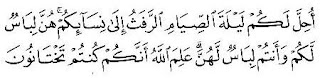 أُحِلَّ لَكُمْ لَيْلَةَ ٱلصِّيَامِ ٱلرَّفَثُ إِلَىٰ نِسَآئِكُمْ ۚ هُنَّ لِبَاسٌ
لَّكُمْ وَأَنتُمْ لِبَاسٌ لَّهُنَّ ۗ عَلِمَ ٱللَّهُ أَنَّكُمْ كُنتُمْ تَخْتَانُونَ